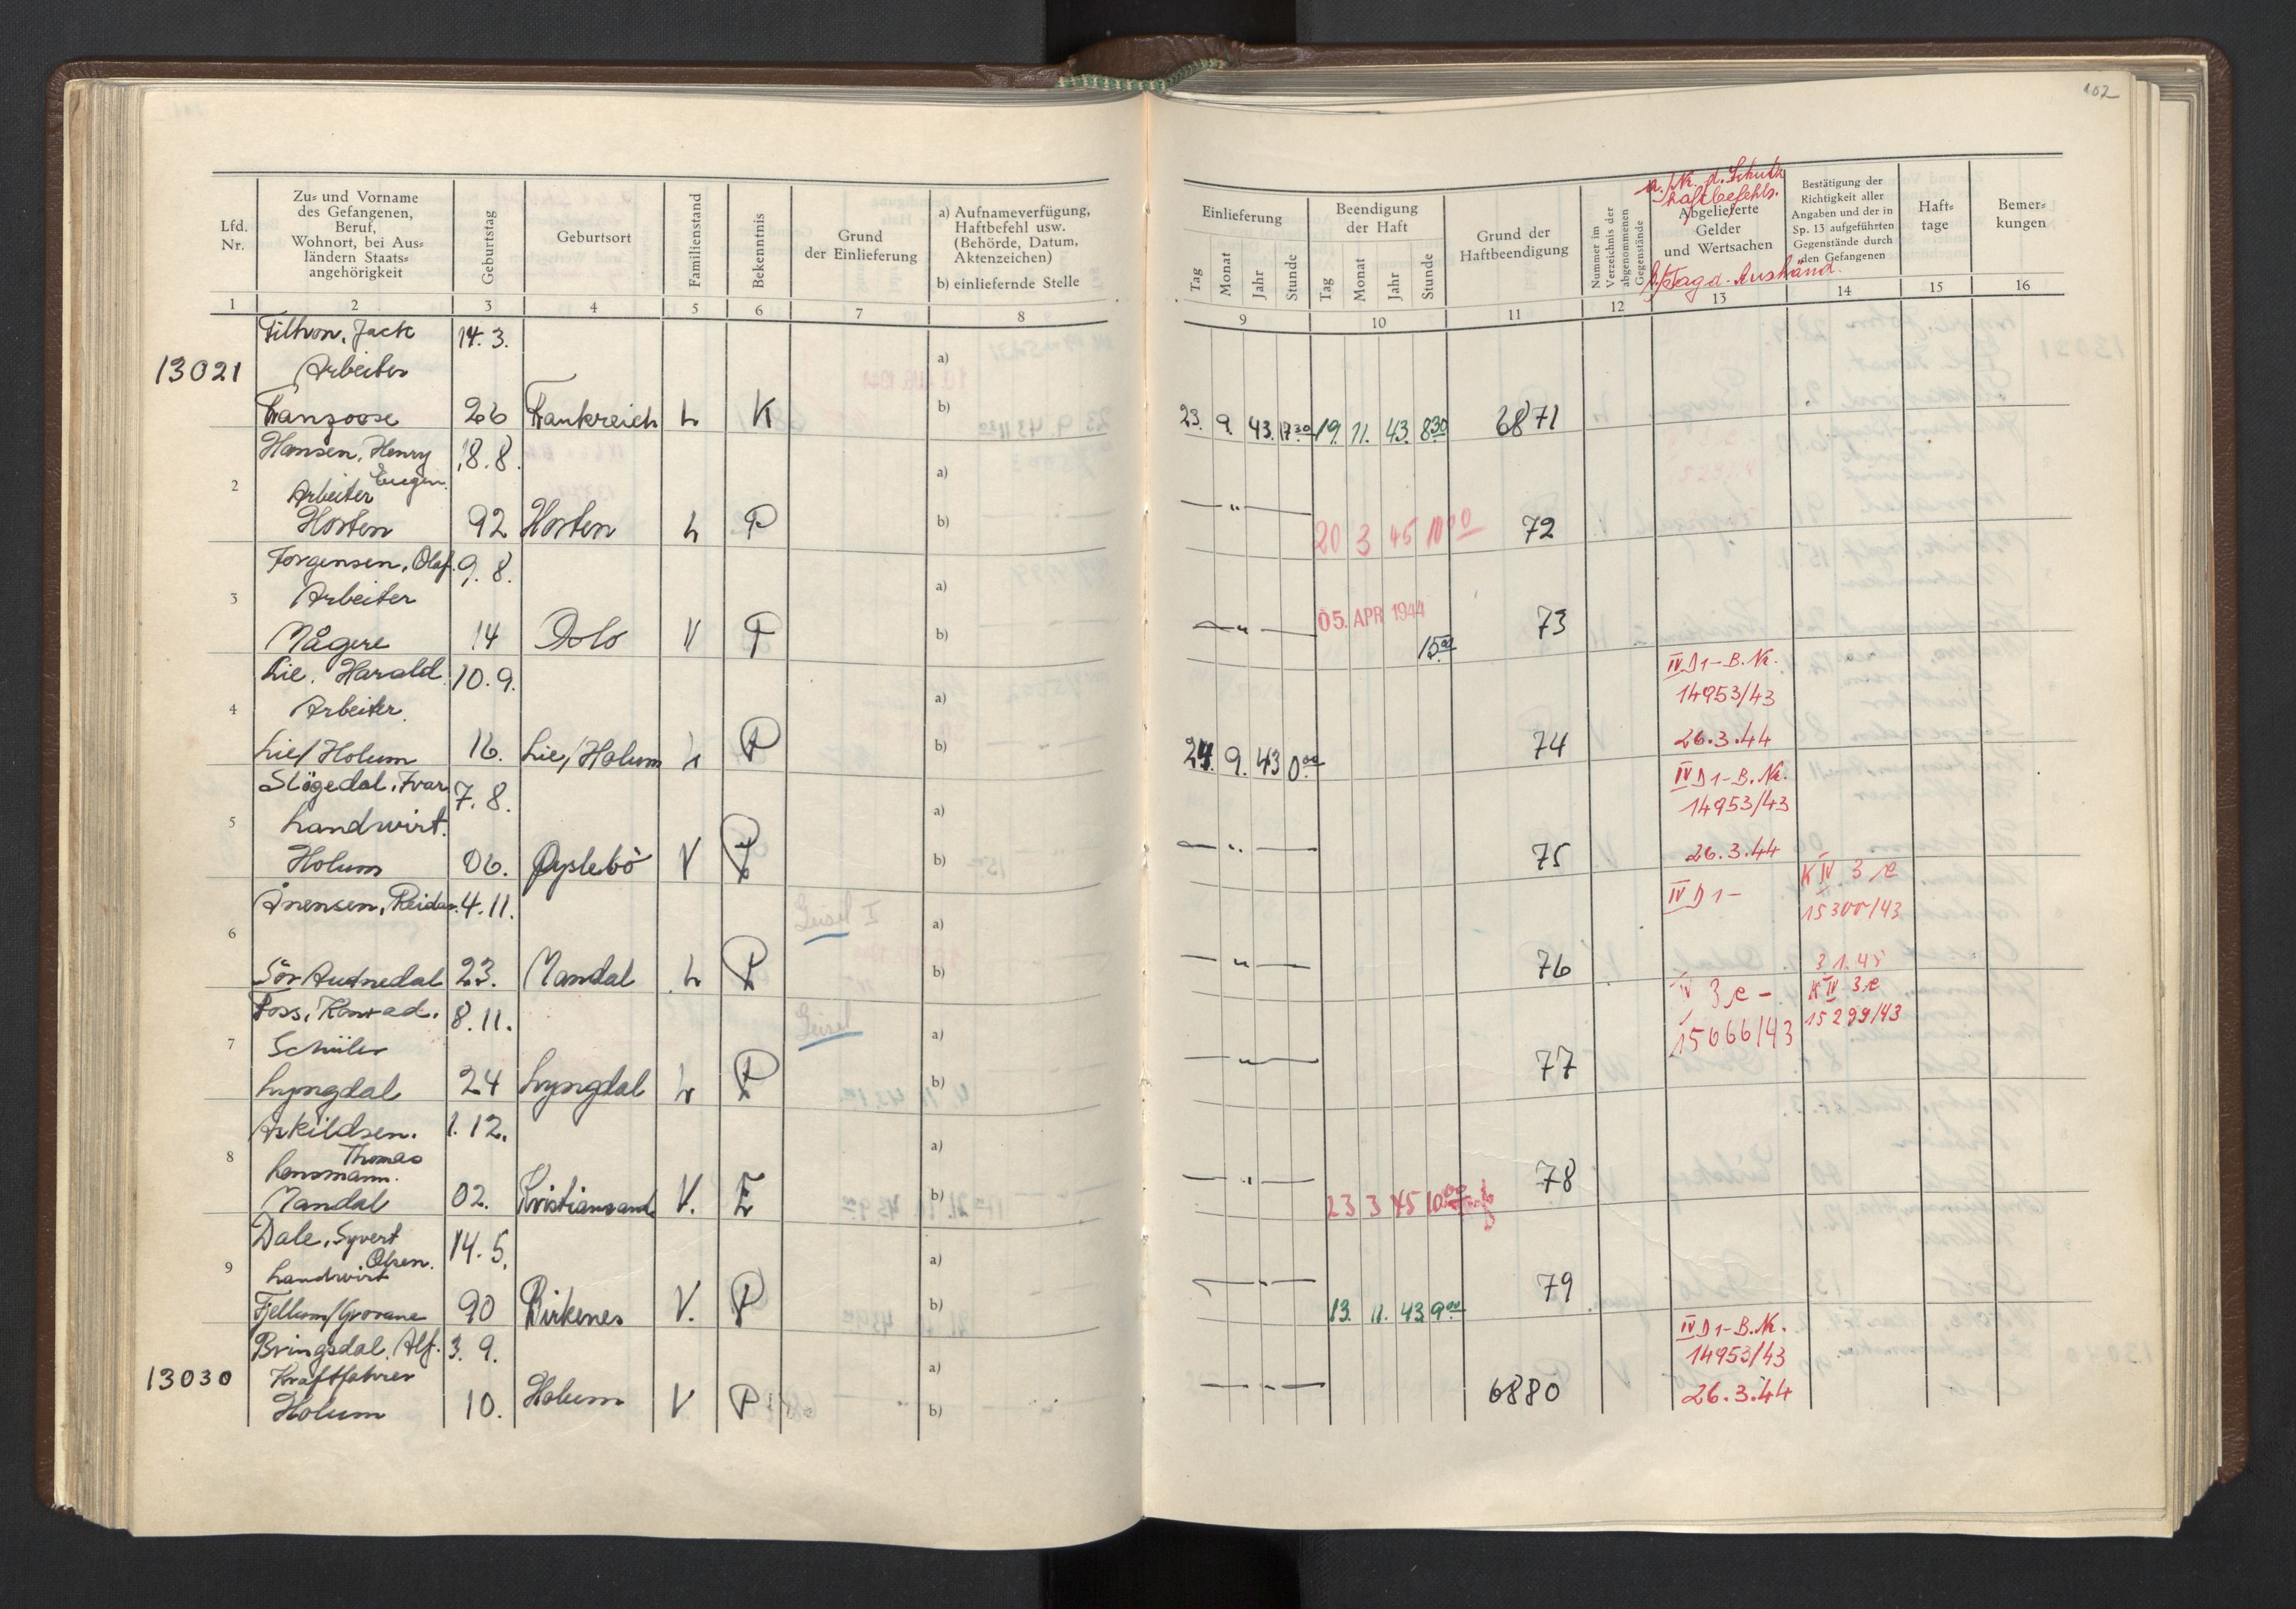 102
Lfd. Nr.
Zu= und Vorname
des Gefangenen,
Beruf,
Wohnort, bei Aus=
ländern Staats=
angehörigkeit
Geburtstag
Geburtsort
Familienstand
Bekenntnis
Grund
der Einlieferung
a) Aufnameverfügung,
Haftbefehl usw.
(Behörde, Datum,
Aktenzeichen)
b) einliefernde Stelle
1 2 3 4 5 6 7 8
Einlieferung
Tag Monat Jahr Stunde
Beendigung
der Haft
Tag Monat Jahr Stunde
Grund der
Haftbeendigung
Nummer im
Verzeichnis der
abgenommenen
Gegenstände
a./Nr. d. Schutz
haftbefehls.
Abgelieferte
Gelder
und Wertsachen
b/Tag d. Aushänd.
Bestätigung der
Richtigkeit aller
Angaben und der in
Sp. 13 aufgeführten
Gegenstände durch
den Gefangenen
Haft=
tage
Bemer=
kungen
9 10 11 12 13 14 15 16
Jack 14. 3.
13021 Arbeiter a)
Franzose 26 Frankreich L K b) 23. 9. 43. 17 30 19. 11. 43. 8 30 6871
Hansen, Henry 18. 8.
Eugen.
2 Arbeiter a)
Horten 92 Horten L P b) — " — 20 3 45 10 00 72
Jorgensen, Olaf. 9. 8.
3 Arbeiter a)
Mågerø 14 Oslo V P b) — " — 05. APR 1944 15 00 73
Lie, Harald 10. 9. IV D 1 - B. Nr.
4 Arbeiter. a) 14953/43
Lie/Holum 16. Lie/Holum L P b) 24. 9. 43 0 00 74 26.3.44
Slögedal, Ivar 7. 8. IV D 1 - B. Nr.
5 Landwirt. a) 14953/43
Holum 06. Øyslebö V P b) — " — 75 26.3.44
Ånensen, Reidar. 4. 11. Geisel I IV D 1 - K IV 3 e
6 a) 15300/43
Sör Audnedal 23. Mandal L P b) — " — 76 3 1. 45
Foss, Konrad. 8. 11. Geisel IV 3 e - K IV 3 e
7 Schüler a) 15066/43 15299/43
Lyngdal 24 Lyngdal L P b) — " — 77
Askildsen. 1. 12.
Thomas
8 Lensmann. a)
Mandal 02. Kristiansand V. E b) — " — 23 3 45 10 00 78
Dale, Syvert 14. 5.
Olsen.
9 Landwirt a)
Fjellum/Grovane 90 Birkenes V. P b) — " — 13. 11. 43 9 00 79
Bringsdal, Alf. 3. 9. IV D 1 - B. Nr.
13030 Kraftfahrer a) 14953/43
Holum 10. Holum V P b) — " — 6880 26.3.44